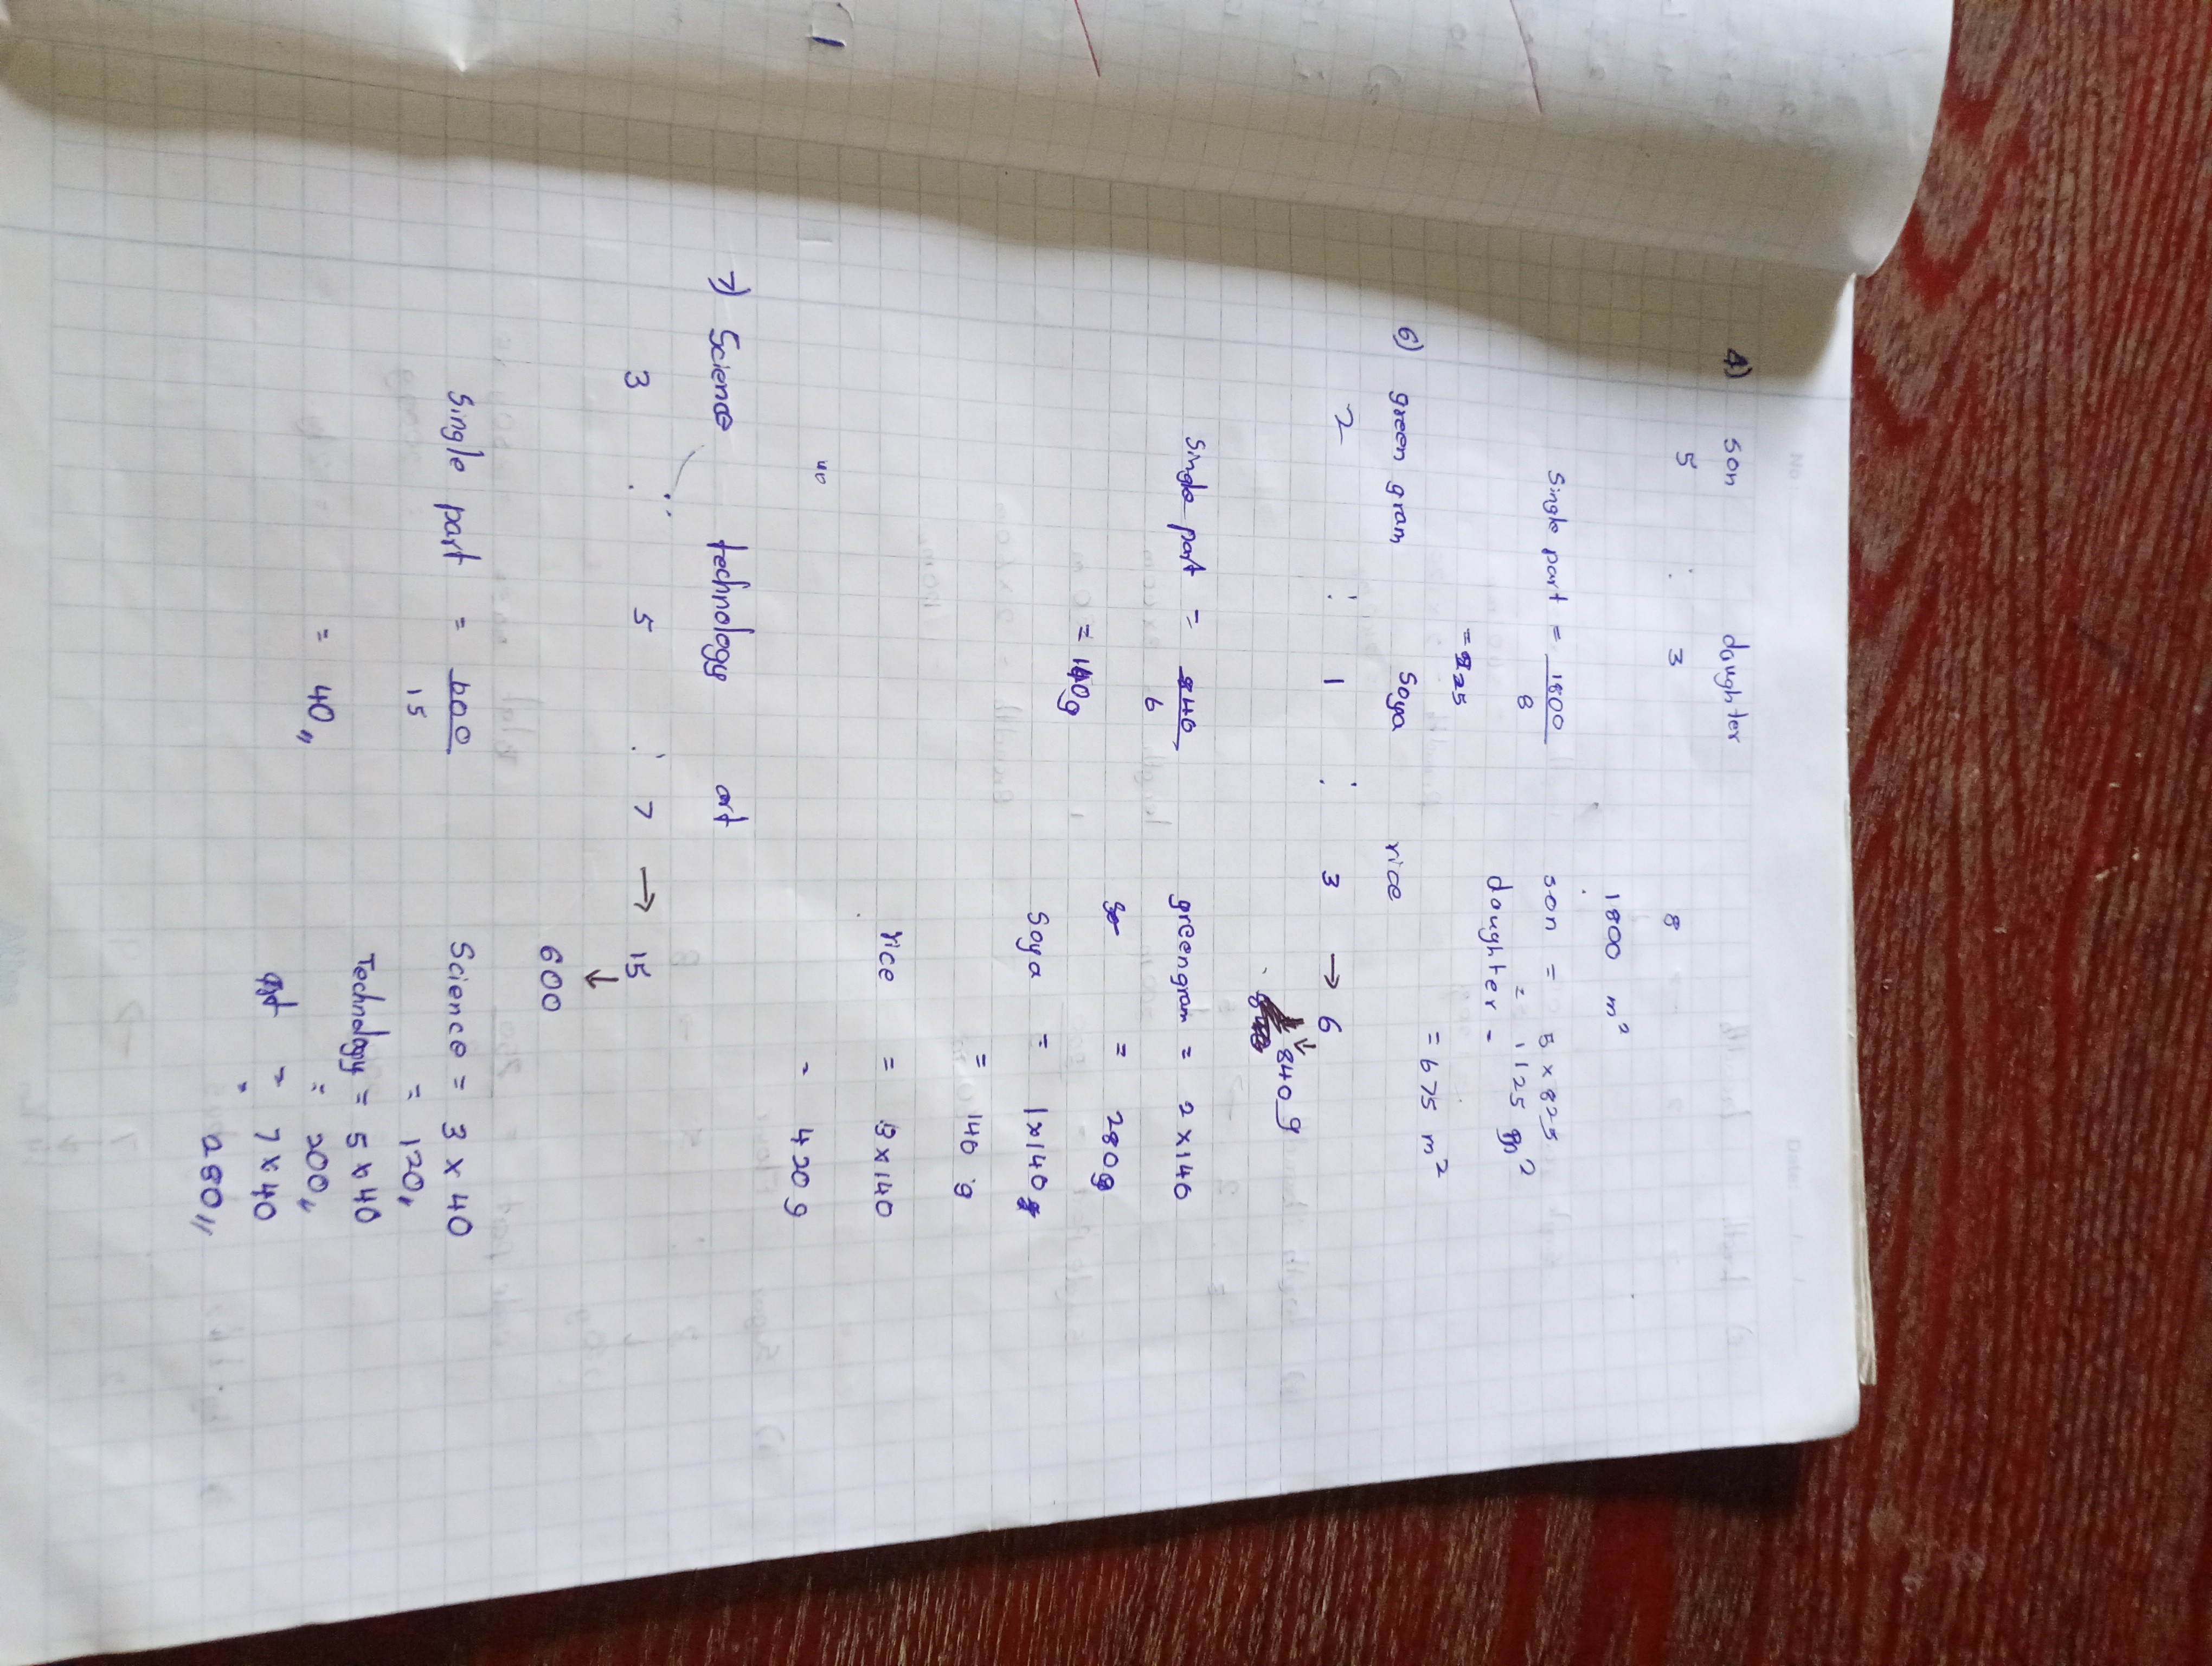 No
Date
4) son daughter
5 : 3 8
1800 m²
Single part = 1800 son = 5 x 225
8 = 1125 m²
daughter =
= 225
= 675 m²
6) green gram Soya rice
2 : 1 : 3 → 6
↓
840 g
Single part = 840 greengram = 2 x 140
6 = 280g
= 140g
Soya = 1 x 140g
= 140 g
rice = 3 x 140
= 420 g
7) Science technology art
3 : 5 : 7 → 15
↓
600
Single part = 600 Science = 3 x 40
15 = 120,,
Technology = 5 x 40
= 40,, = 200,,
art = 7 x 40
= 280,,